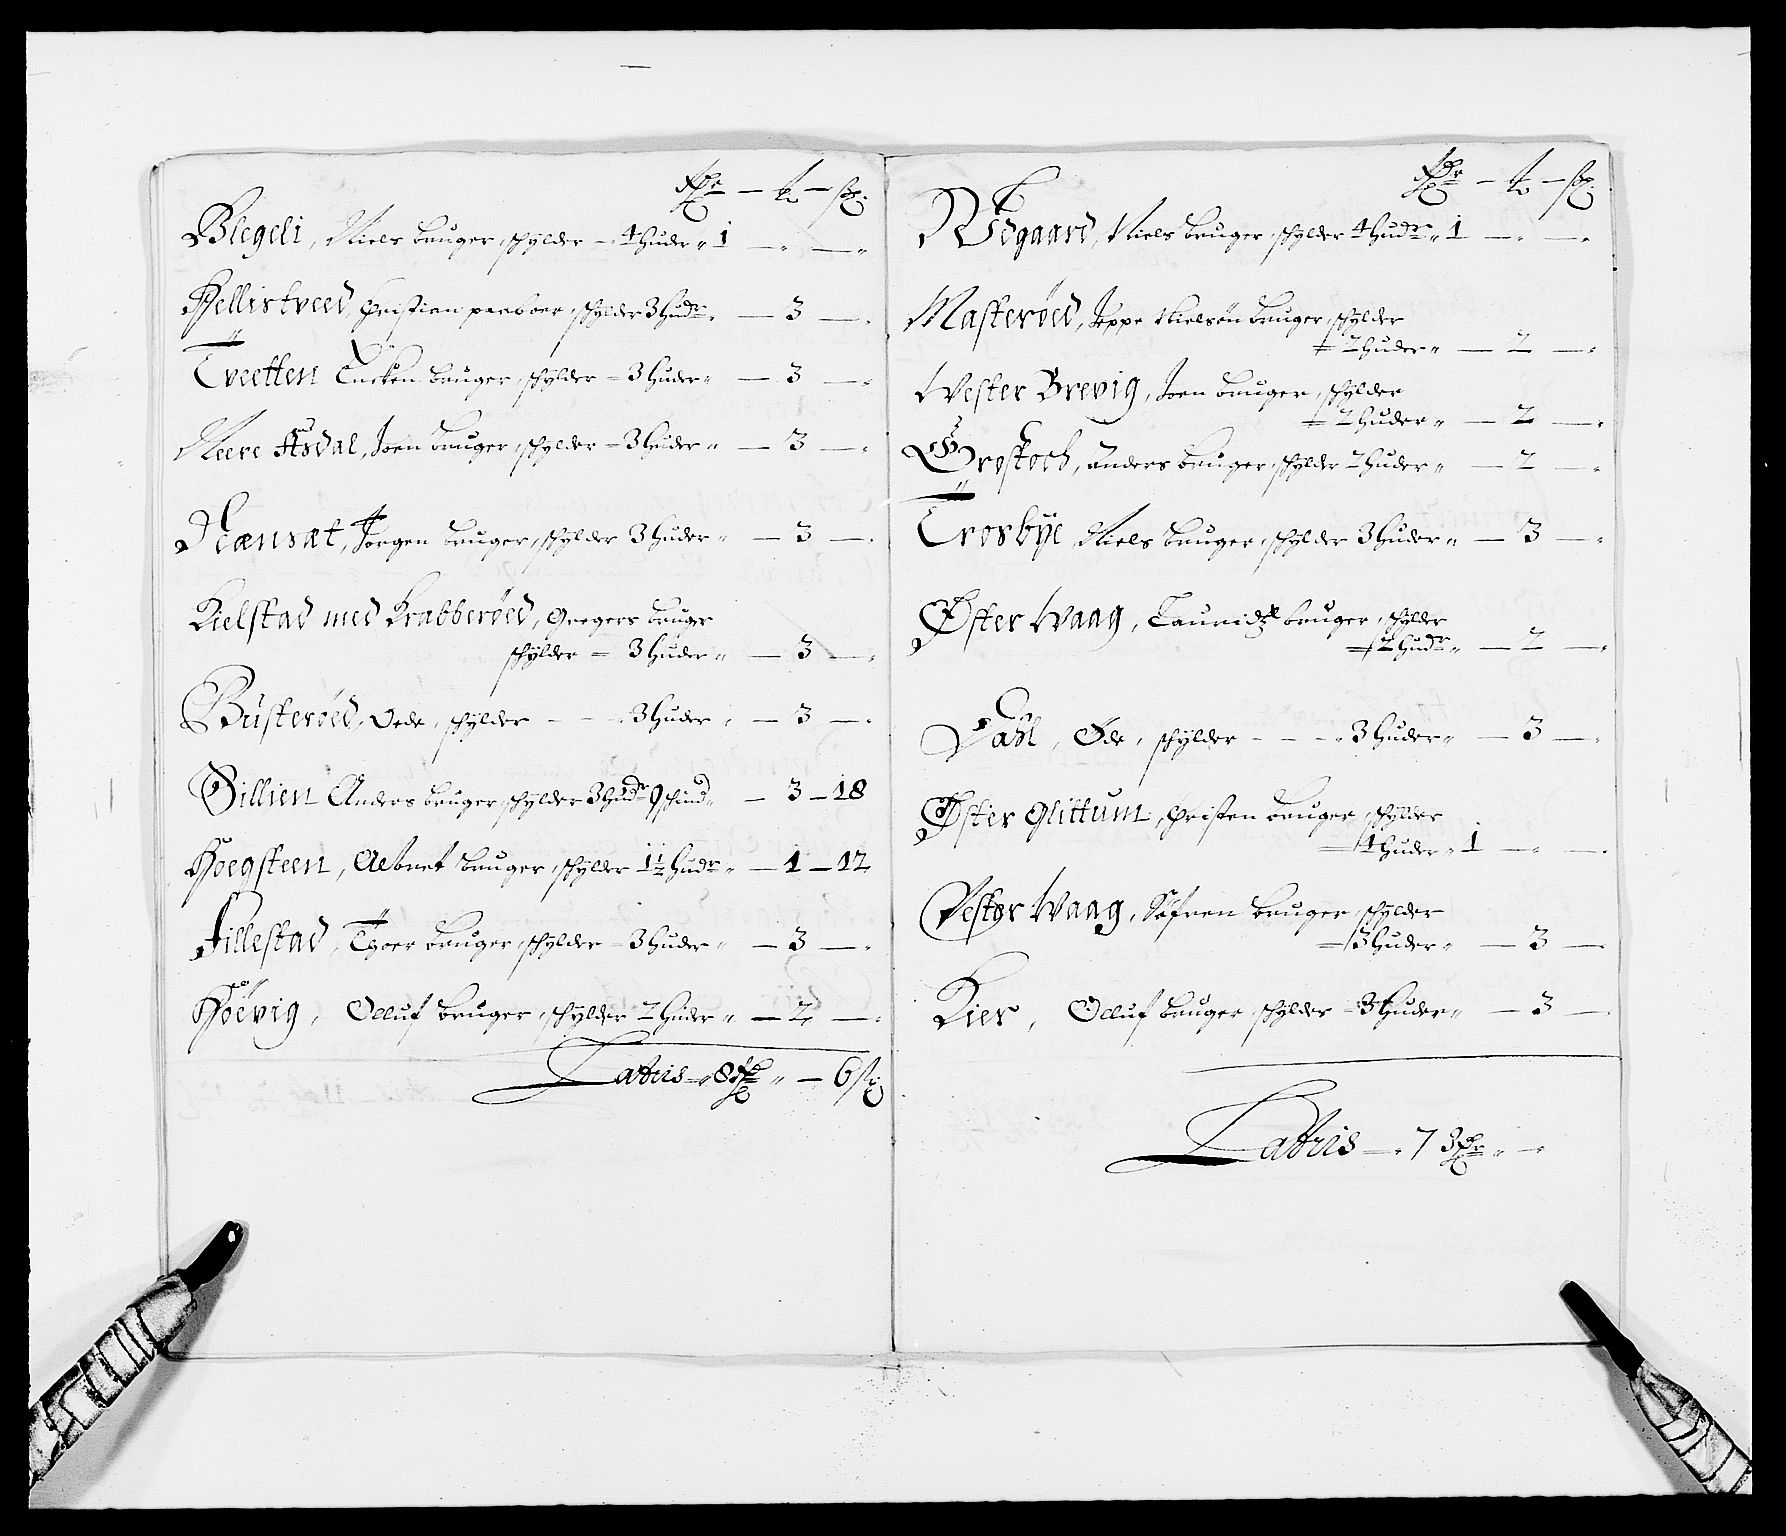 Rdr — t — sk.
Blegeli, Niels bruger, schylder — 4 huder „ 1 — „ — „
Hellistveed, Christian paaboer, schylder 3 hudr „ — 3 — „
Tveetten Tucken bruger, schylder = 3 huder „ — 3 — „
Neere Aasdal, Joen bruger, schylder = 3 huder „ — 3 — „
Hænsæt, Jørgen bruger, schylder 3 huder „ — 3 — „
Kielstad med Krabberöed, Gregers brugr
schylder = 3 huder „ — 3 — „
Büsteröed, Öede, schylder — — „ 3 huder „ — 3 — „
Gillien Anders bruger, schylder 3 hudr 9 schind „ — 3 — 18
Hoegsteen, Aebret bruger, schylder 1½ hudr „ — 1 — 12
Fillestad, Thoer bruger, schylder = 3 huder „ — 3 — „
Höevig, Olluf bruger, schylder 2 huder „ — 2 — „
Lateris „ 8 Rdr „ — 6 sk
Rdr — t — sk.
Ödgaard, Niels bruger, schylder 4 hudr „ 1 — „ — „
Masteröed, Jeppe Nielsön bruger, schylder
= 2 huder „ — 2 — „
Wester Brevig, Joen bruger, schylder
= 2 huder „ — 2 — „
Groskoch, Anders bruger, schylder 2 huder „ — 2 — „
Trosbye Niels bruger, schylder 3 huder „ — 3 — „
Øster Waag, Lauridtz bruger, schylder
= 2 hudr „ — 2 — „
Dahl, Øde, schylder — — — „ 3 huder „ — 3 — „
Øster Glittum, Christen bruger, schylder
= 4 huder „ 1 — „ — „
Vester Waag, Söfren bruger, schylder
= 3 huder „ — 3 — „
Kier, Olluf bruger, schylder = 3 huder „ — 3 — „
Lateris — „ 7 Rdr „ — „